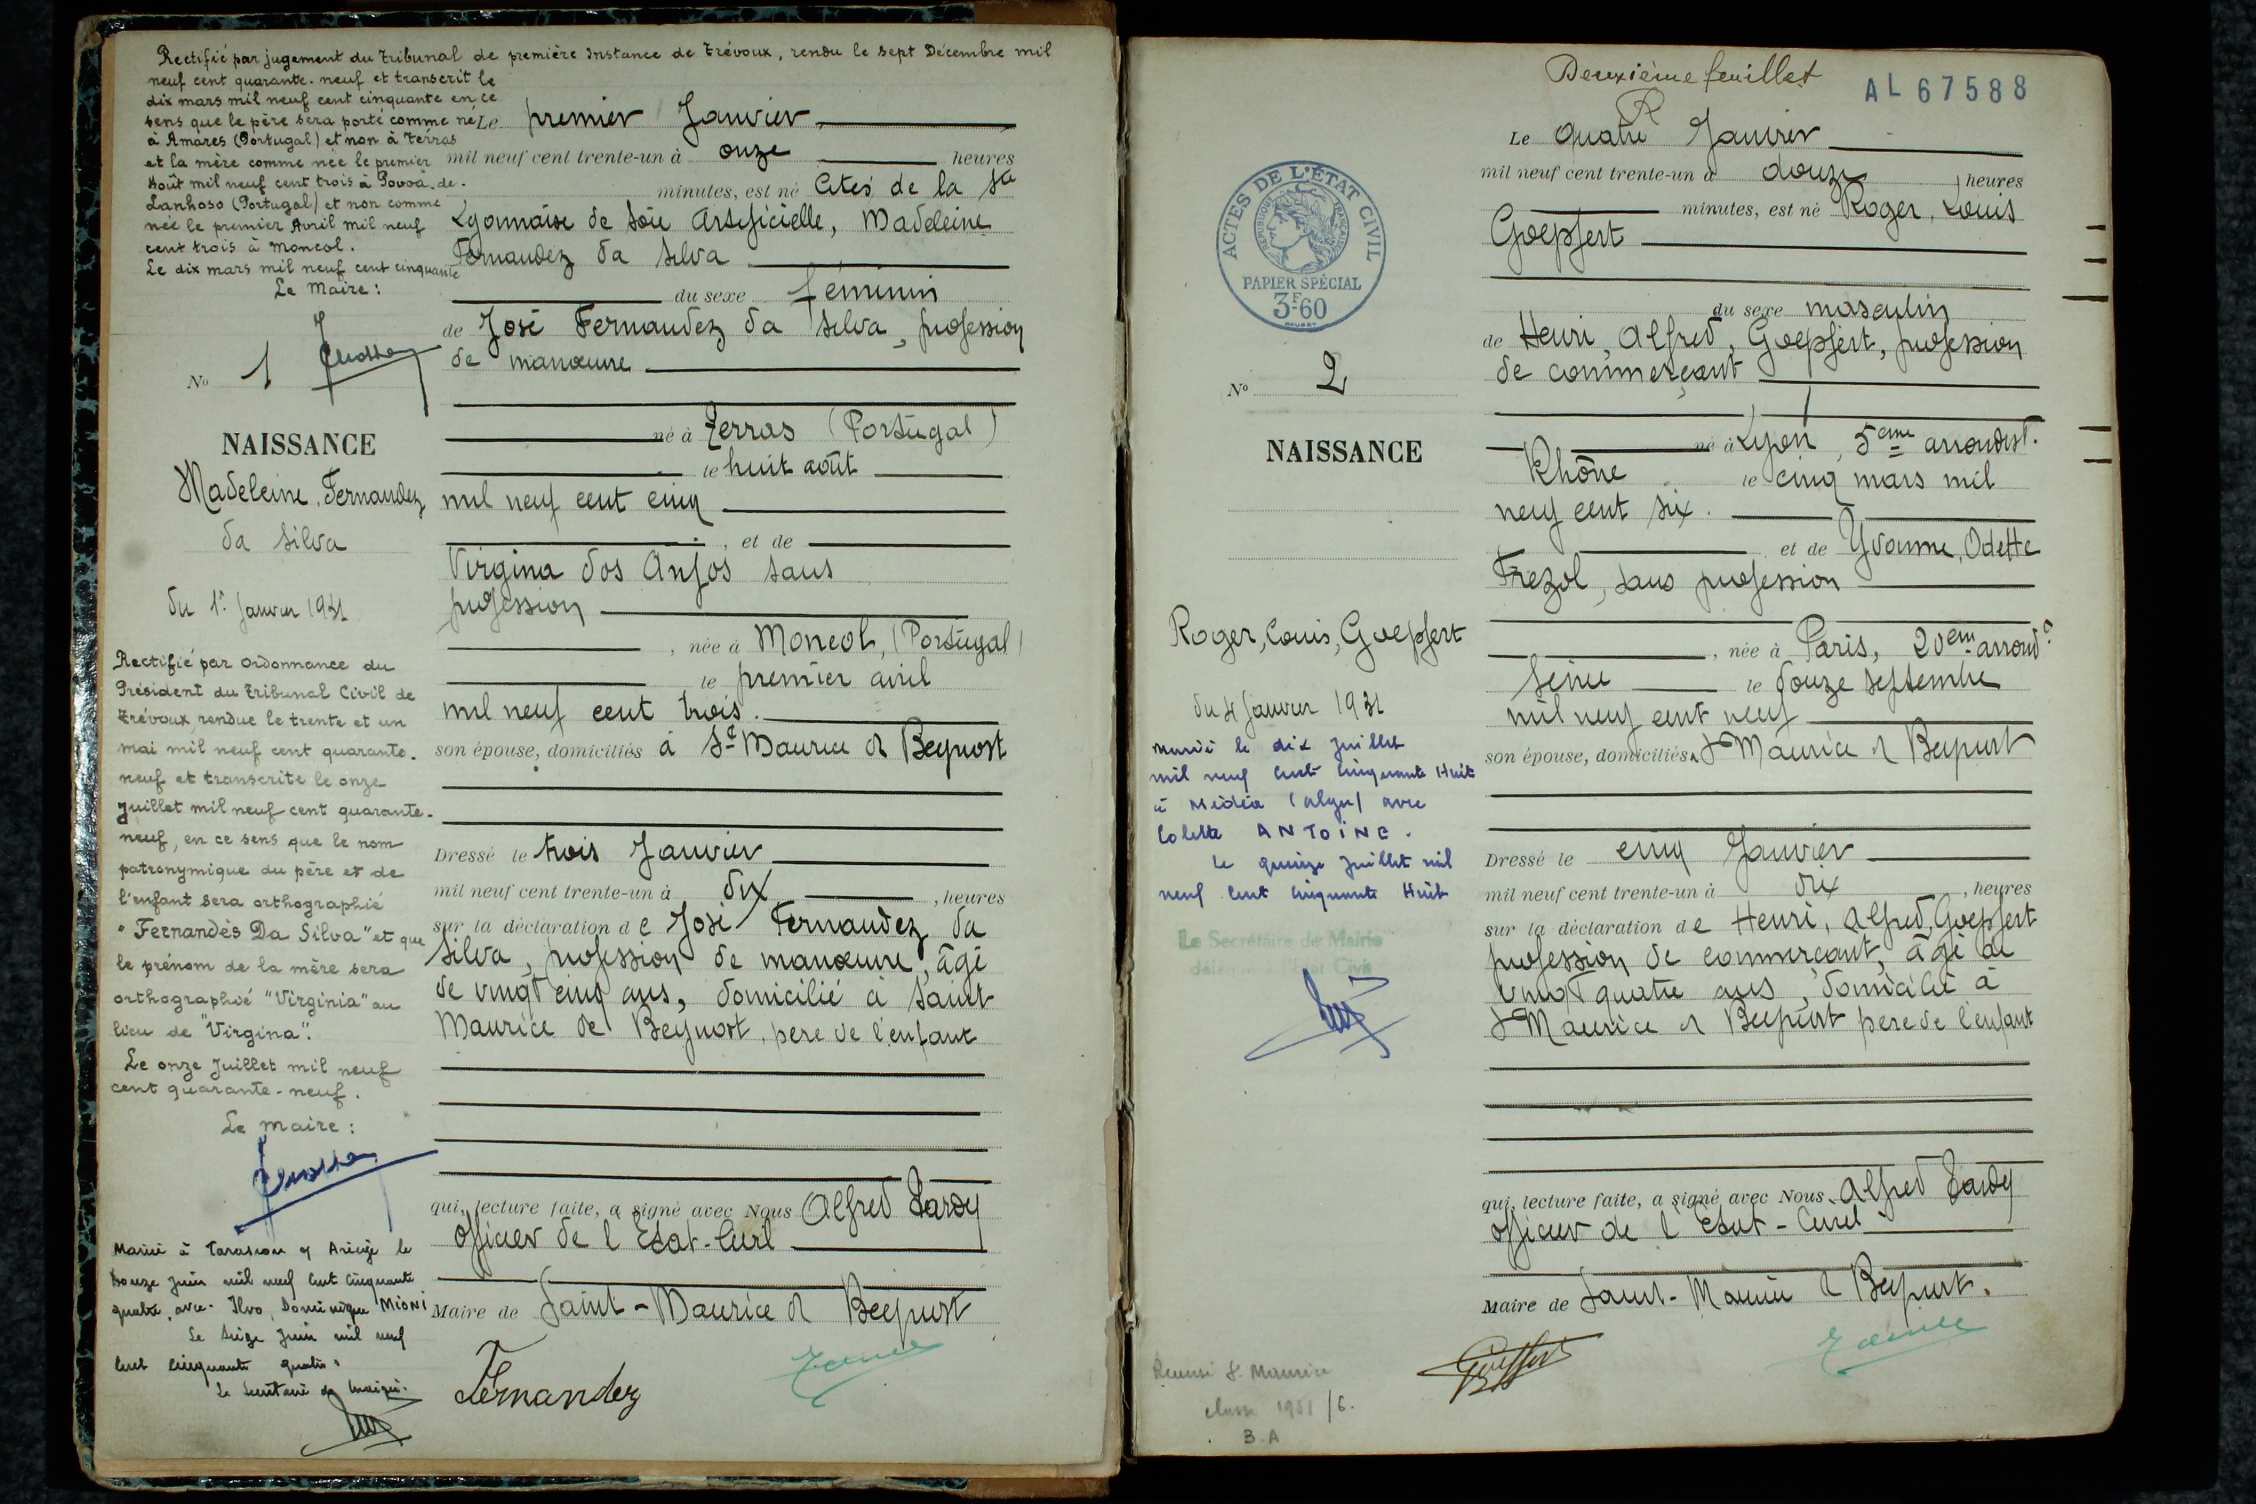 Rectifié par jugement du Tribunal de première Instance de Trévoux, rendu le sept Décembre mil
neuf cent quarante-neuf et transcrit le
dix mars mil neuf cent cinquante en ce
sens que le père sera porté comme né
à Amares (Portugal) et non à Terras
et la mère comme née le premier
Août mil neuf cent trois à Povoa-de-
Lanhoso (Portugal) et non comme
née le premier Avril mil neuf
cent trois à Moncol.
Le dix mars mil neuf cent cinquante
Le Maire:
No 1
NAISSANCE
Madeleine, Fernandez
da Silva
du 1er Janvier 1931
Rectifié par Ordonnance du
Président du Tribunal Civil de
Trévoux rendue le trente et un
mai mil neuf cent quarante-
neuf et transcrite le onze
Juillet mil neuf cent quarante-
neuf, en ce sens que le nom
patronymique du père et de
l'enfant sera orthographié
"Fernandès Da Silva" et que
le prénom de la mère sera
orthographié "Virginia" au
lieu de "Virgina".
Le onze Juillet mil neuf
cent quarante-neuf.
Le Maire:
Marié à Tarascon s/ Ariège le
douze juin mil neuf cent cinquante
quatre, avec Ilvo, Dominique MIONI
Le seize juin mil neuf
cent cinquante quatre.
Le Secrétaire de Mairie.
Le premier Janvier
mil neuf cent trente-un à onze heures
minutes, est né Cités de la Sté
Lyonnaise de Soie Artificielle, Madeleine
Fernandez da Silva
du sexe féminin
de José Fernandez da Silva, profession
de manœuvre
né à Terras (Portugal)
le huit août
mil neuf cent cinq
, et de
Virgina dos Anjos sans
profession
, née à Moncol, (Portugal)
le premier avril
mil neuf cent trois.
son épouse, domiciliés à St Maurice de Beynost
Dressé le trois Janvier
mil neuf cent trente-un à dix , heures
sur la déclaration de José Fernandez da
Silva, profession de manœuvre, âgé
de vingt cinq ans, domicilié à Saint
Maurice de Beynost, père de l'enfant
qui, lecture faite, a signé avec Nous Alfred Lardy
officier de l'Etat-Civil
Maire de Saint-Maurice de Beynost
Fernandez
Deuxième feuillet
AL 67588
ACTES DE L'ÉTAT CIVIL
RÉPUBLIQUE FRANÇAISE
PAPIER SPÉCIAL
3F60
No 2
NAISSANCE
Roger, Louis, Goepfert
du 4 Janvier 1931
Marié le dix juillet
mil neuf cent cinquante Huit
à Médéa (Alger) avec
Colette ANTOINE.
Le quinze juillet mil
neuf cent cinquante Huit
Le Secrétaire de Mairie
délégué à l'Etat Civil
St Maurice
classe 1951/6.
B.A
Le quatre Janvier
mil neuf cent trente-un à douze heures
minutes, est né Roger, Louis
Goepfert
du sexe masculin
de Henri, Alfred, Goepfert, profession
de commerçant
né à Lyon, 5eme arrondist.
Rhône le cinq mars mil
neuf cent six.
et de Yvonne, Odette
Frezol, sans profession
, née à Paris, 20em arrondt
Seine le douze septembre
mil neuf cent neuf
son épouse, domiciliés à St Maurice de Beynost
Dressé le cinq Janvier
mil neuf cent trente-un à dix , heures
sur la déclaration de Henri, Alfred, Goepfert
profession de commerçant, âgé de
vingt quatre ans, domicilié à
St Maurice de Beynost père de l'enfant
qui, lecture faite, a signé avec Nous, Alfred Lardy
officier de l'Etat-Civil
Maire de Saint-Maurice de Beynost.